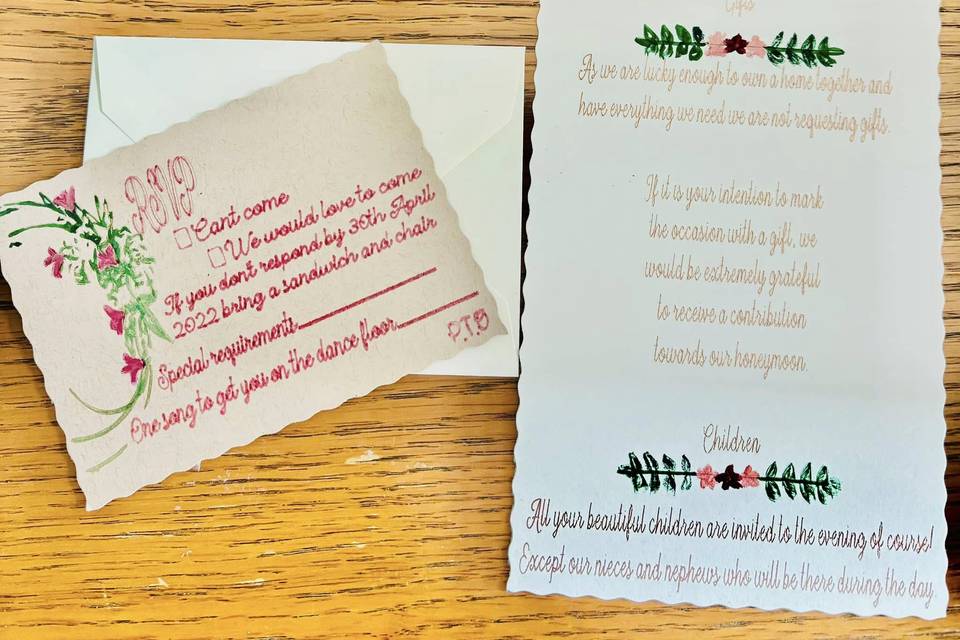 RSVP
Cant come
We would love to come
If you don't respond by 30th April
2022 bring a sandwich and chair
Special requirements
One song to get you on the dance floor
P.T.O
Gifts
As we are lucky enough to own a home together and
have everything we need we are not requesting gifts.
If it is your intention to mark
the occasion with a gift, we
would be extremely grateful
to receive a contribution
towards our honeymoon.
Children
All your beautiful children are invited to the evening of course!
Except our nieces and nephews who will be there during the day.